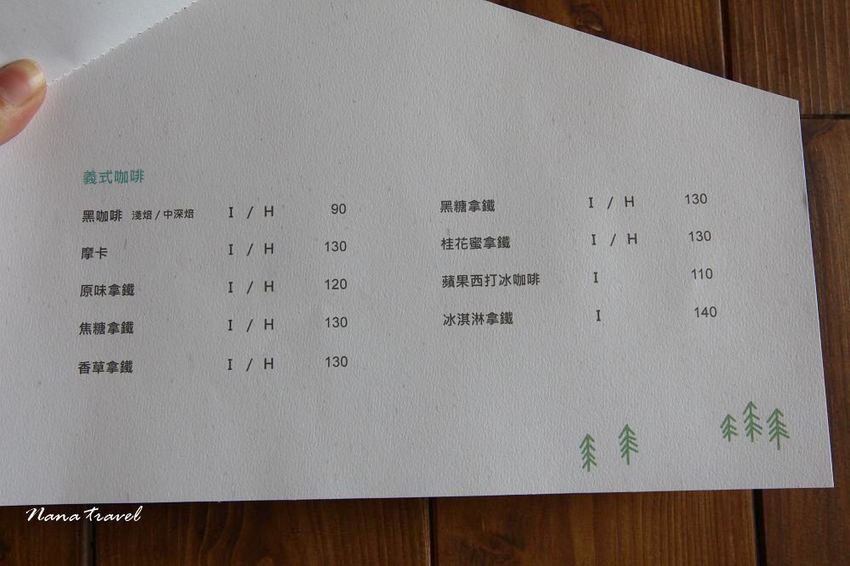 義式咖啡
黑咖啡 淺焙 / 中深焙 I / H 90
摩卡 I / H 130
原味拿鐵 I / H 120
焦糖拿鐵 I / H 130
香草拿鐵 I / H 130
黑糖拿鐵 I / H 130
桂花蜜拿鐵 I / H 130
蘋果西打冰咖啡 I 110
冰淇淋拿鐵 I 140
Nana Travel